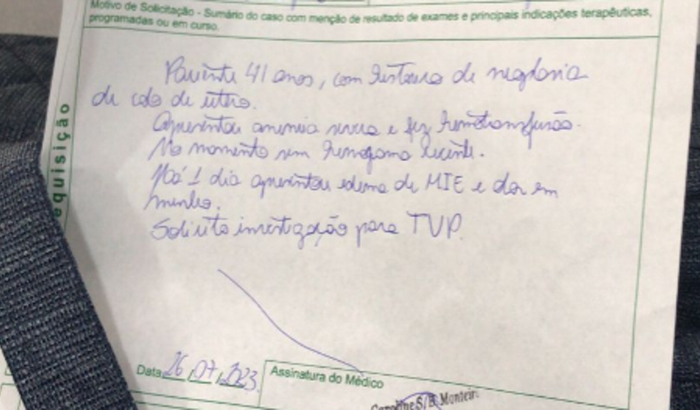 Motivo de Solicitação - Sumário do caso com menção de resultado de exames e principais indicações terapêuticas,
programadas ou em curso.
Paciente 41 anos, com historia de neoplasia
de colo de útero.
Apresentou anemia severa e fez hemotransfusão.
No momento sem hemograma recente.
Há 1 dia apresentou edema de MIE e dor em
membro.
Solicito investigação para TVP.
equisição
Data 26/07/2023
Assinatura do Médico
Caroline S/B Monteir